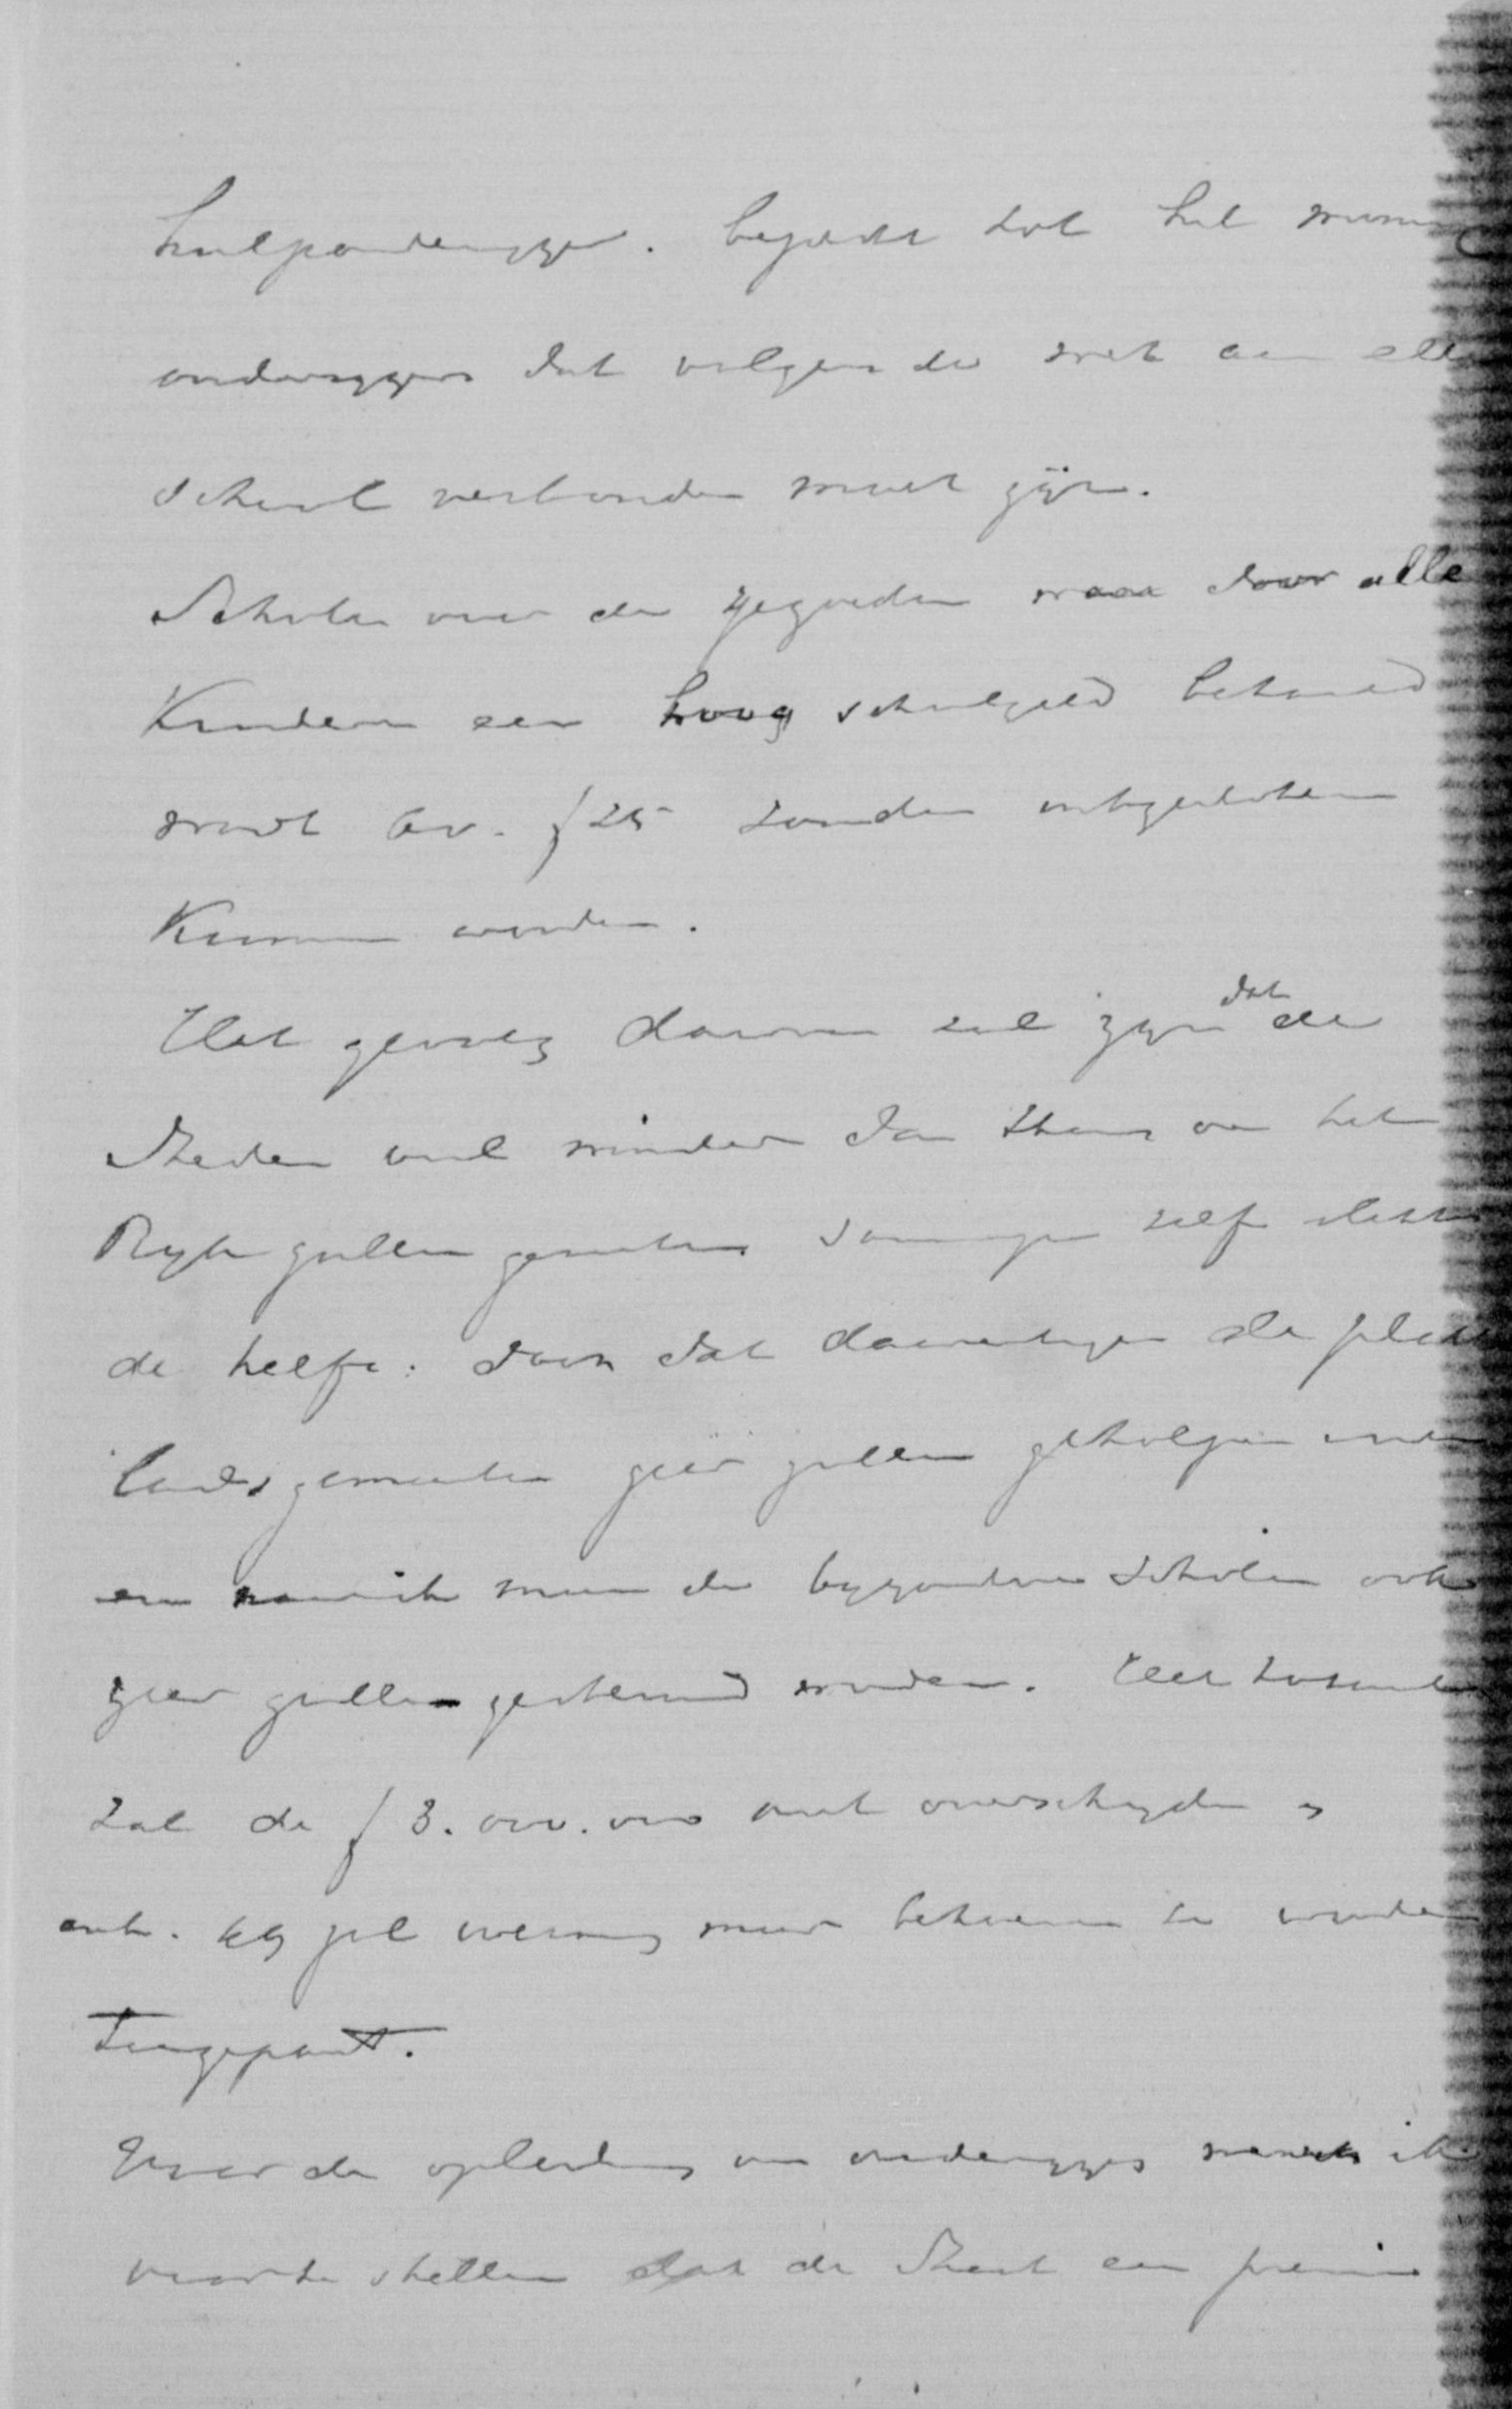 hulponderwyzer. beperkt tot het
onderwyzers dat volgens de wet aan elke
school verbonden moet zijn.
Scholen voor de gegoeden waar door alle
Kinderen een hoog schoolgeld betaald
wordt bv. f 25 zouden uitgesloten
Kunnen worden.
Het gevolg daarvan zal zyn dat de
Steden veel minder dan thans van het
Ryk zullen genieten sommigen zelfs slechts
de helft: doch dat daarentegen de
landsgemeenten zeer zullen geholpen
en de byzondere Scholen ook
zeer zullen gesteund worden. Het
zal de f 3.000.000 niet overschryden
art. 49 zal weinig meer behoeven te worden
toegepast.
Voor de opleiding van onderwyzers ik
voor te stellen dat de Staat een premie